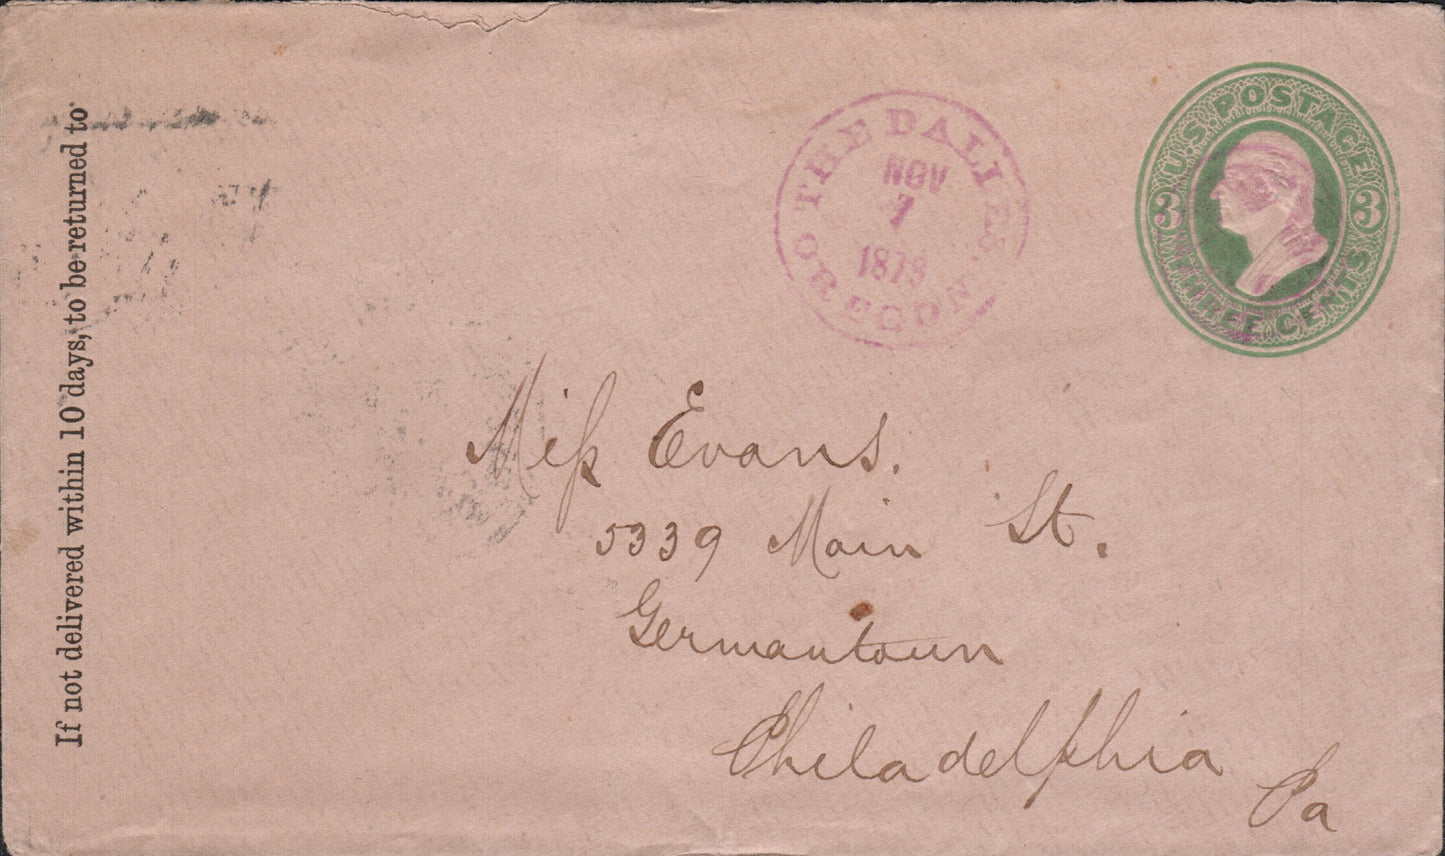 If not delivered within 10 days, to be returned to
THE DALLES
NOV
7
OREGON
U.S. POSTAGE
3 3
THREE CENTS
Miss Evans.
5339 Main St.
Germantown
Philadelphia
Pa